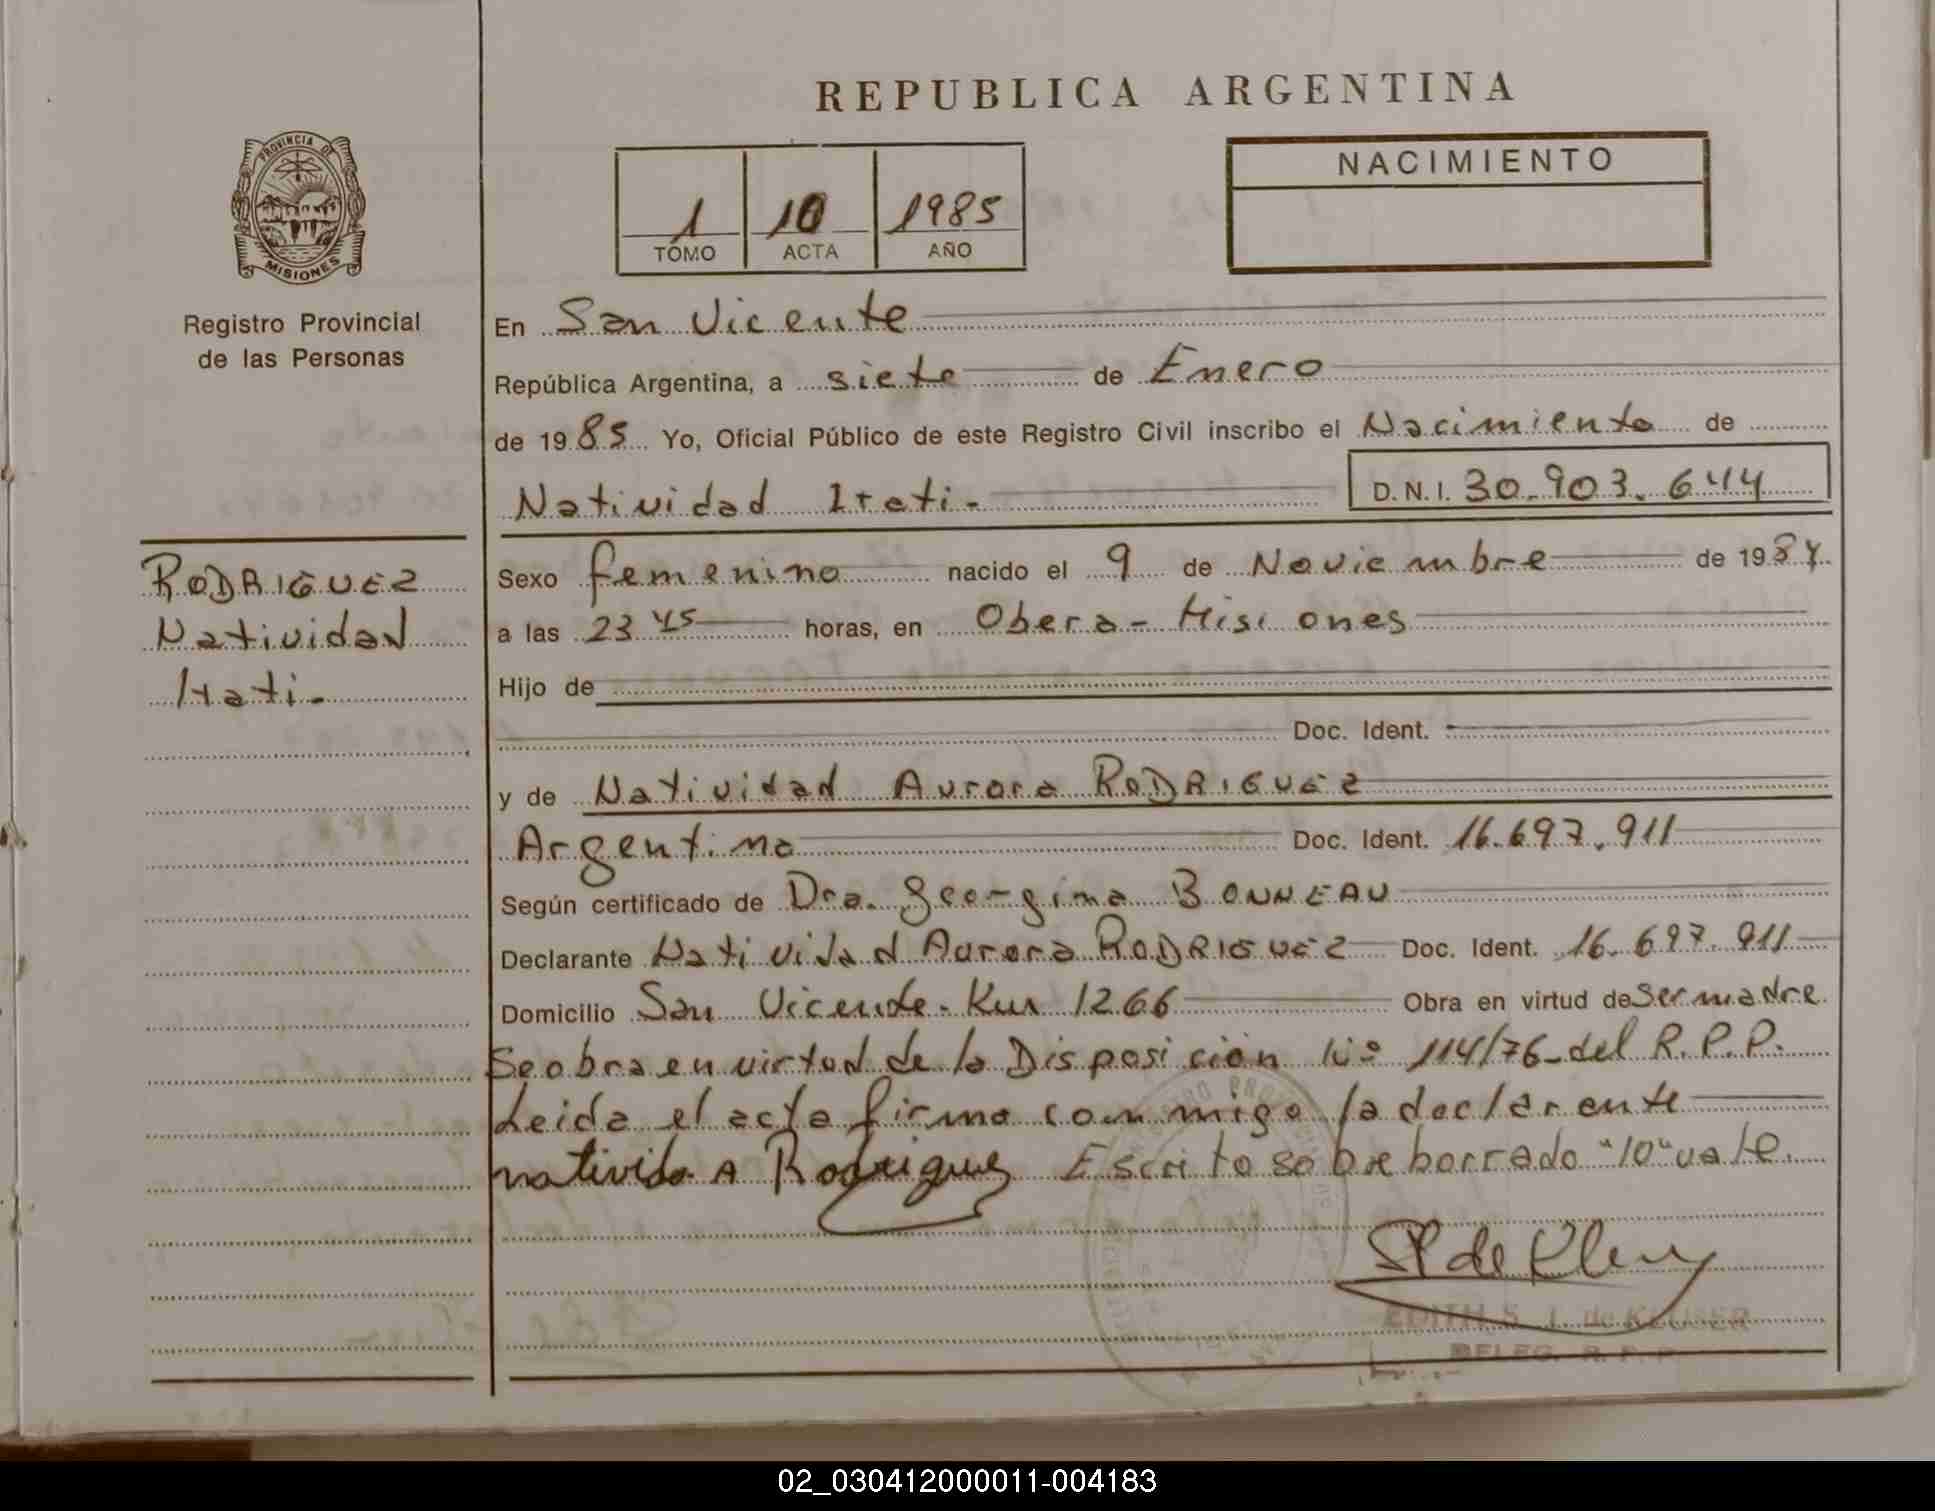 REPUBLICA ARGENTINA
PROVINCIA DE
MISIONES
Registro Provincial
de las Personas
1 10 1985
TOMO ACTA AÑO
NACIMIENTO
En San Vicente
República Argentina, a siete de Enero
de 1985 Yo, Oficial Público de este Registro Civil inscribo el Nacimiento de
Natividad Itati.
D.N.I. 30.903.644
RODRIGUEZ
Natividad
Itati.
Sexo femenino nacido el 9 de Noviembre de 1984.
a las 23 45 horas, en Obera - Misiones
Hijo de
Doc. Ident.
y de Natividad Aurora RODRIGUEZ
Argentina Doc. Ident. 16.697.911
Según certificado de Dra. Georgina BONNEAU
Declarante Natividad Aurora RODRIGUEZ Doc. Ident. 16.697.911
Domicilio San Vicente - Km 1266 Obra en virtud de Ser madre
Se obra en virtud de la Disposición Nº 114/76 del R.P.P.
Leida el acta firma conmigo la declarente
natividad A Rodriguez Escrito sobre borrado "10" vale.
EDITH S. I. de KLUSER
DELEG. R. P. P.
02_030412000011-004183